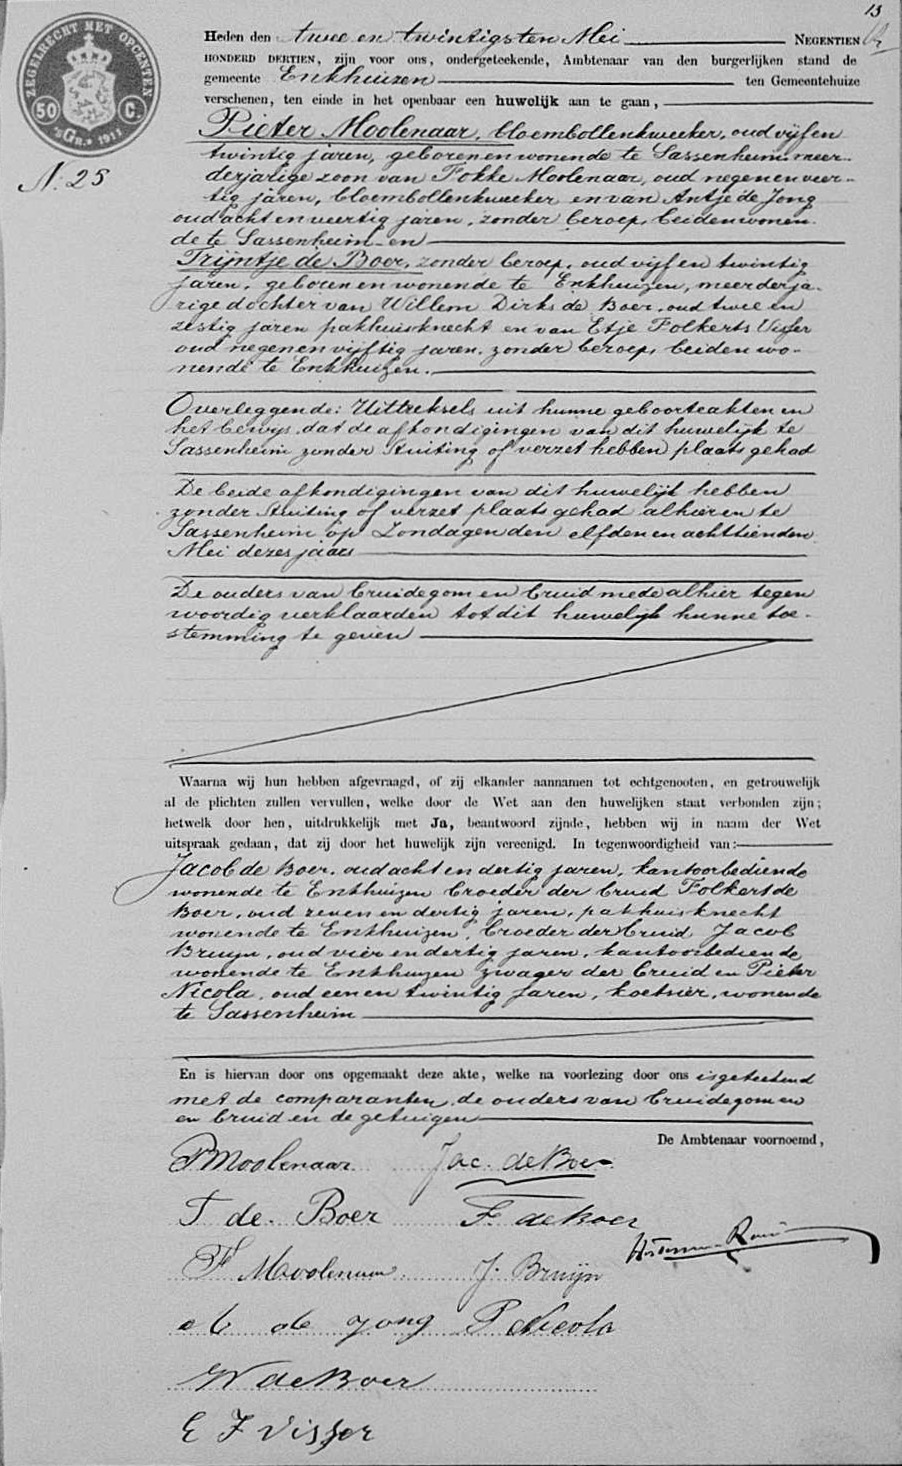 13
ZEGELRECHT MET OPCENTEN
50 C.
'S GR. 1911
N. 25
Heden den twee en twintigsten Mei NEGENTIEN
HONDERD DERTIEN, zijn voor ons, ondergeteekende, Ambtenaar van den burgerlijken stand de
gemeente Enkhuizen ten Gemeentehuize
verschenen, ten einde in het openbaar een huwelijk aan te gaan,
Pieter Moolenaar, bloembollenkweeker, oud vijf en
twintig jaren, geboren en wonende te Sassenheim meer-
derjarige zoon van Fokke Moolenaar, oud negen en veer-
tig jaren, bloembollenkweeker en van Antje de Jong
oud acht en veertig jaren, zonder beroep, beiden wonen-
de te Sassenheim en
Trijntje de Boer, zonder beroep, oud vijf en twintig
jaren, geboren en wonende te Enkhuizen, meerderja-
rige dochter van Willem Dirks de Boer, oud twee en
zestig jaren pakhuisknecht en van Etje Folkerts Visser
oud negen en vijftig jaren, zonder beroep, beiden wo-
nende te Enkhuizen.
Overleggende: Uittreksels uit hunne geboorteakten en
het bewijs, dat de afkondigingen van dit huwelijk te
Sassenheim zonder stuiting of verzet hebben plaats gehad
De beide afkondigingen van dit huwelijk hebben
zonder stuiting of verzet plaats gehad alhier en te
Sassenheim op Zondagen den elfden en achttienden
Mei dezes jaars
De ouders van bruidegom en bruid mede alhier tegen
woordig verklaarden tot dit huwelijk hunne toe-
stemming te geven
Waarna wij hun hebben afgevraagd, of zij elkander aannamen tot echtgenooten, en getrouwelijk
al de plichten zullen vervullen, welke door de Wet aan den huwelijken staat verbonden zijn;
hetwelk door hen, uitdrukkelijk met Ja, beantwoord zijnde, hebben wij in naam der Wet
uitspraak gedaan, dat zij door het huwelijk zijn vereenigd. In tegenwoordigheid van:
Jacob de Boer, oud acht en dertig jaren, kantoorbediende
wonende te Enkhuizen broeder der bruid Folkert de
Boer, oud zeven en dertig jaren, pakhuisknecht
wonende te Enkhuizen, broeder der bruid Jacob
Bruijn, oud vier en dertig jaren, kantoorbediende
wonende te Enkhuizen zwager der bruid en Pieter
Nicola, oud een en twintig jaren, koetsier, wonende
te Sassenheim
En is hiervan door ons opgemaakt deze akte, welke na voorlezing door ons is geteekend
met de comparanten, de ouders van bruidegom en
en bruid en de getuigen
De Ambtenaar voornoemd,
P Moolenaar Jac. de Boer
T de Boer F. de Boer
F Moolenaar J. Bruijn
A de Jong P Nicola
W de Boer
E F Visser